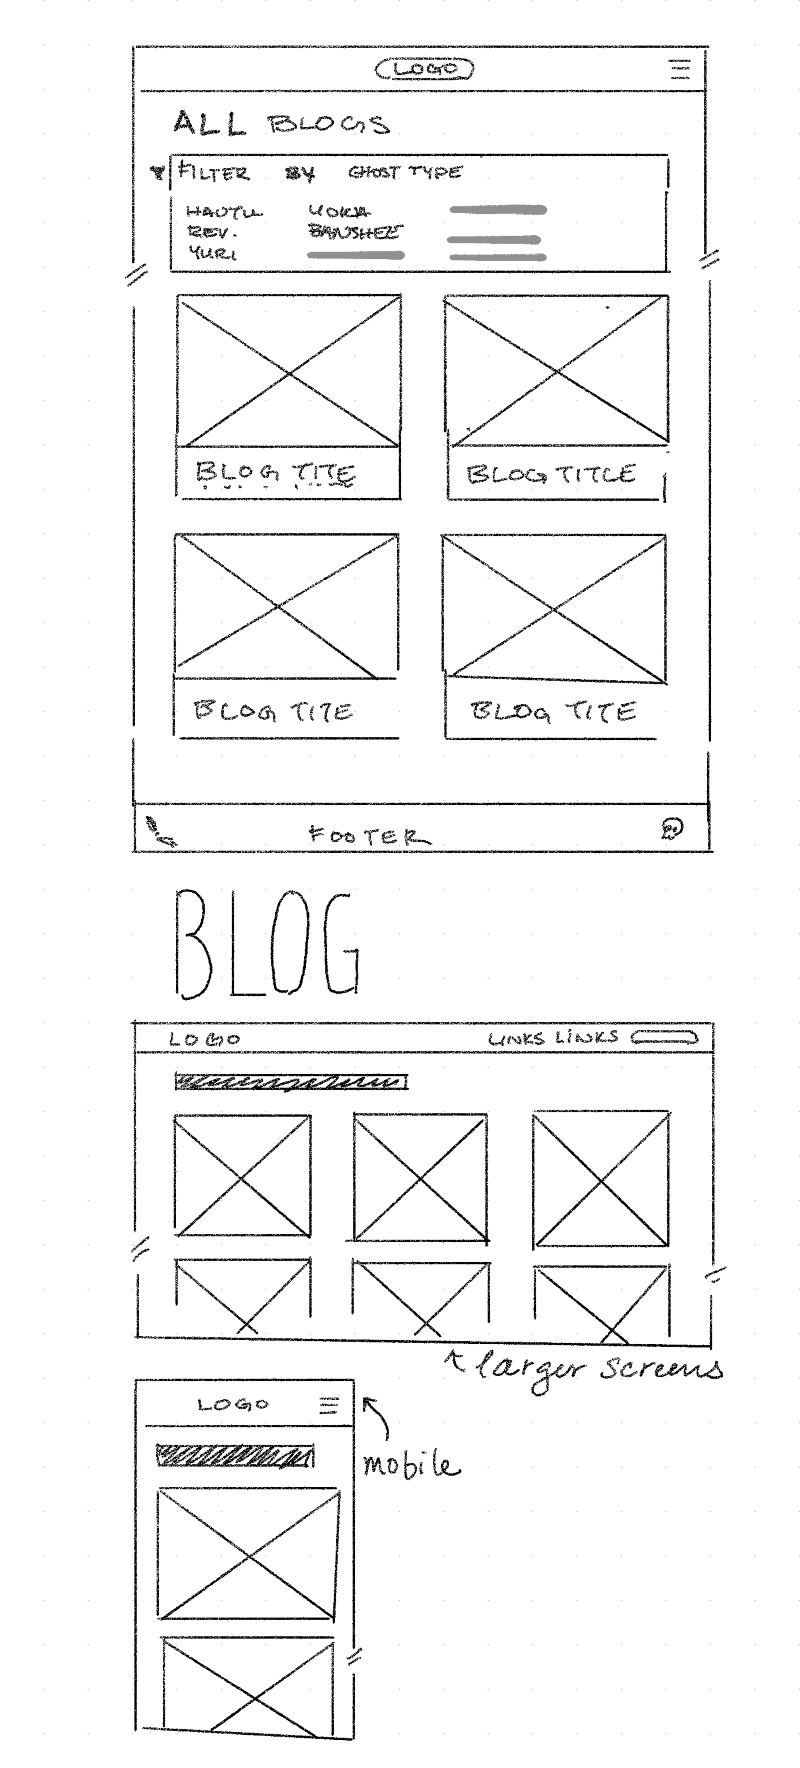 LOGO
ALL BLOGS
FILTER BY GHOST TYPE
HANTU YOKIA
REV. BANSHEE
YURI
BLOG TITE BLOG TITLE
BLOG TITE BLOG TITE
FOOTER
BLOG
LOGO LINKS LINKS
larger screens
LOGO
mobile